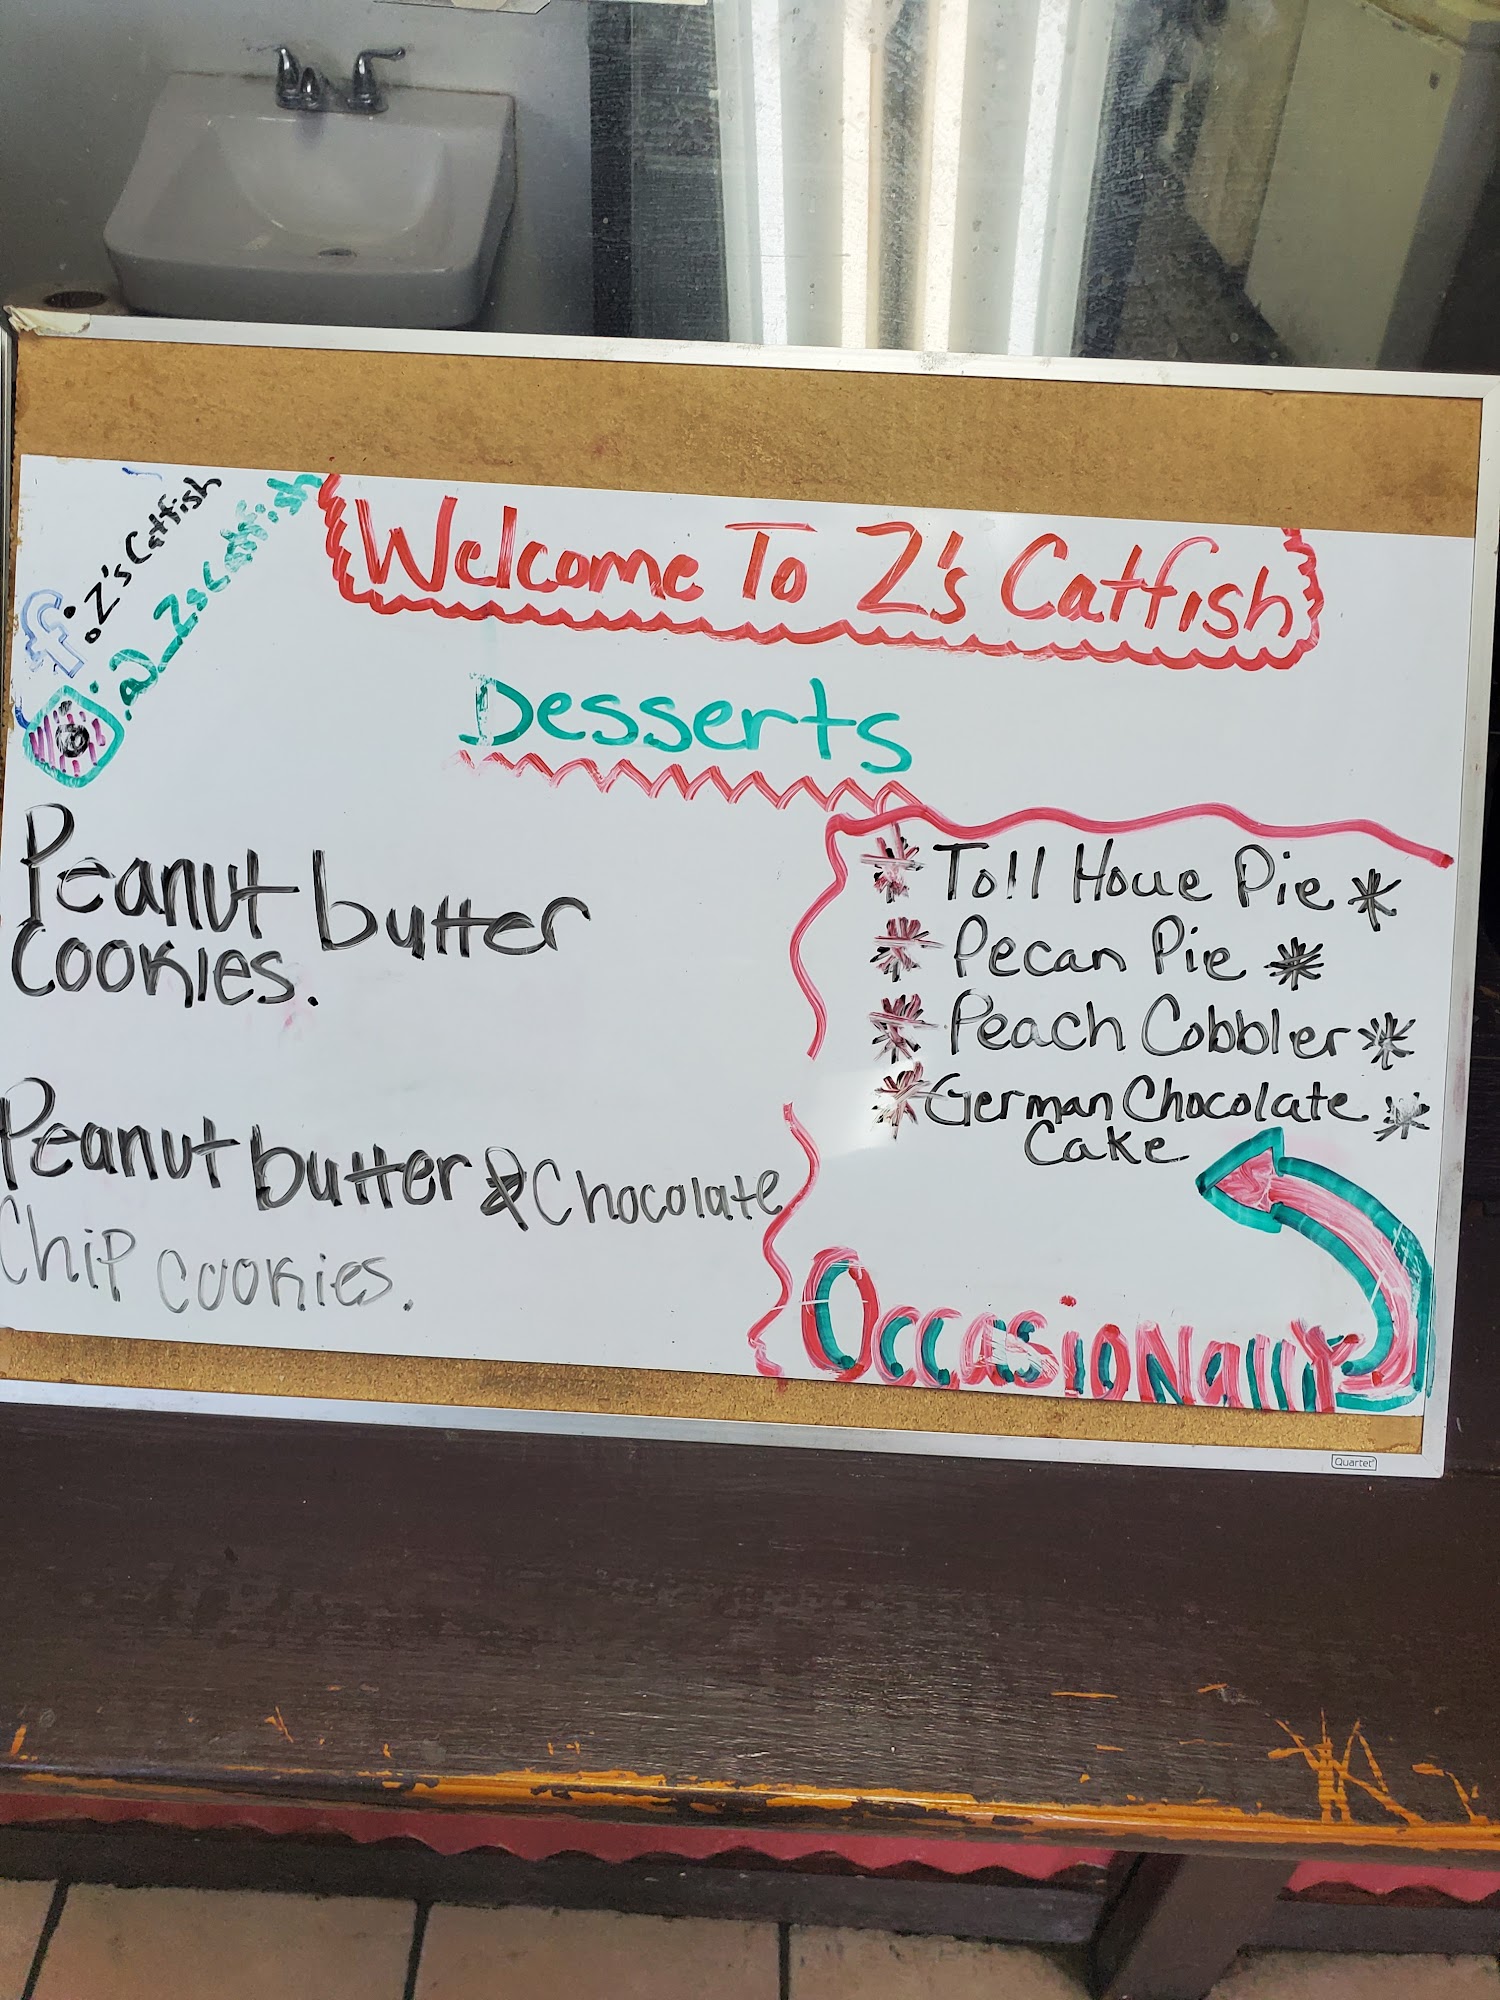 : Z's Catfish
: @_ZsCatfish
Welcome To Z's Catfish
Desserts
Peanut butter
Cookies.
Peanut butter & Chocolate
Chip cookies.
* Toll Houe Pie *
* Pecan Pie *
* Peach Cobbler *
* German Chocolate *
Cake
Occasionally
Quartet